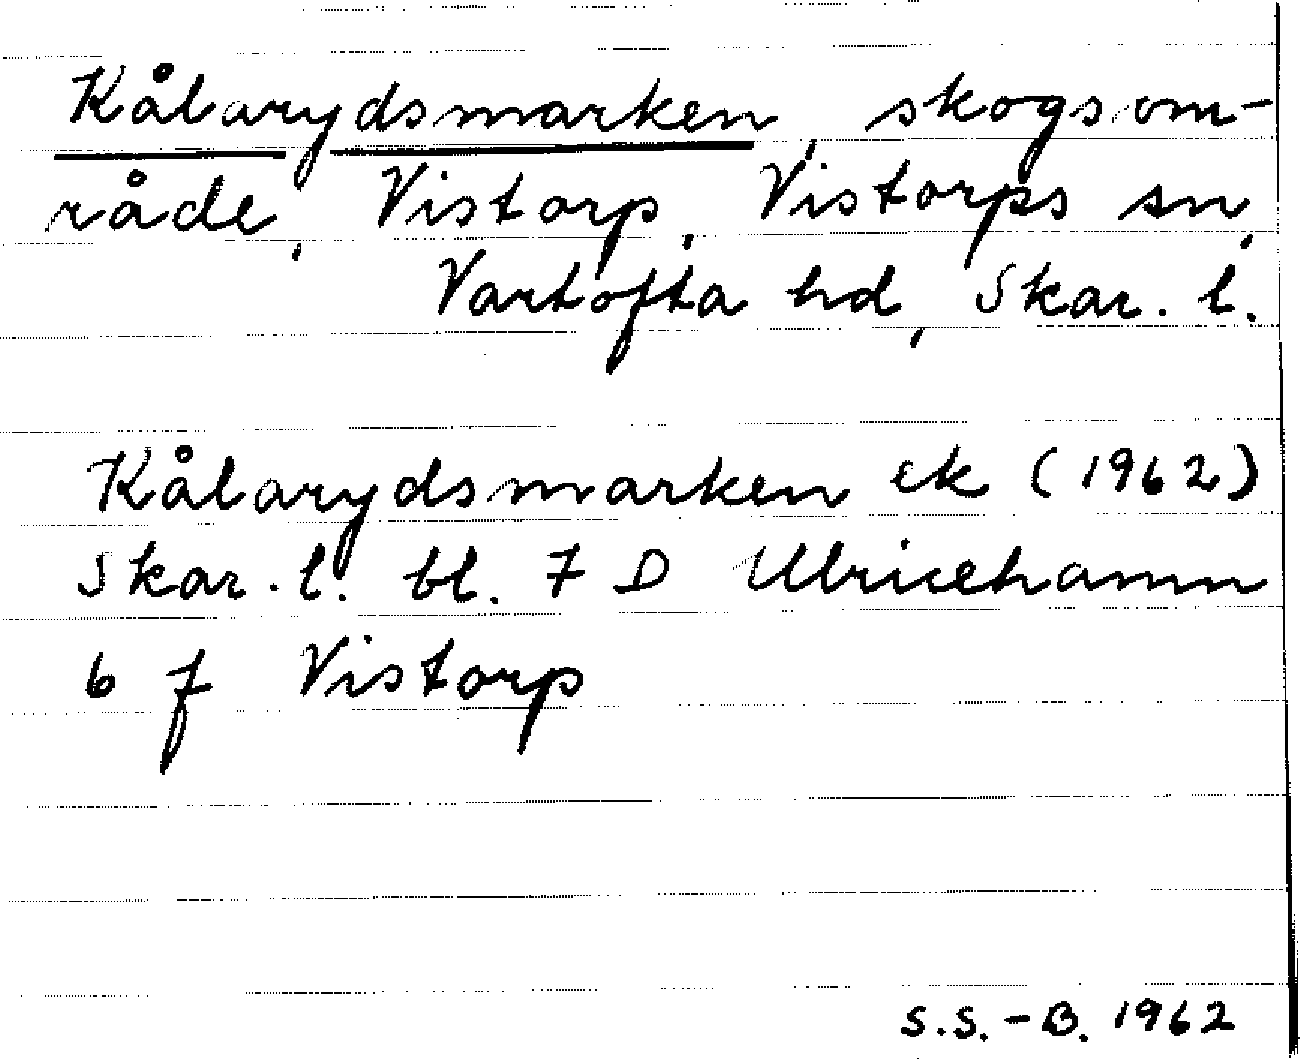 Kålarydsmarken, skogsom-
råde, Vistorp, Vistorps sn,
Vartofta hd, Skar. l.
Kålarydsmarken ek (1962)
Skar. l. bl. 7 D Ulricehamn
6 f Vistorp
S.S.-B. 1962